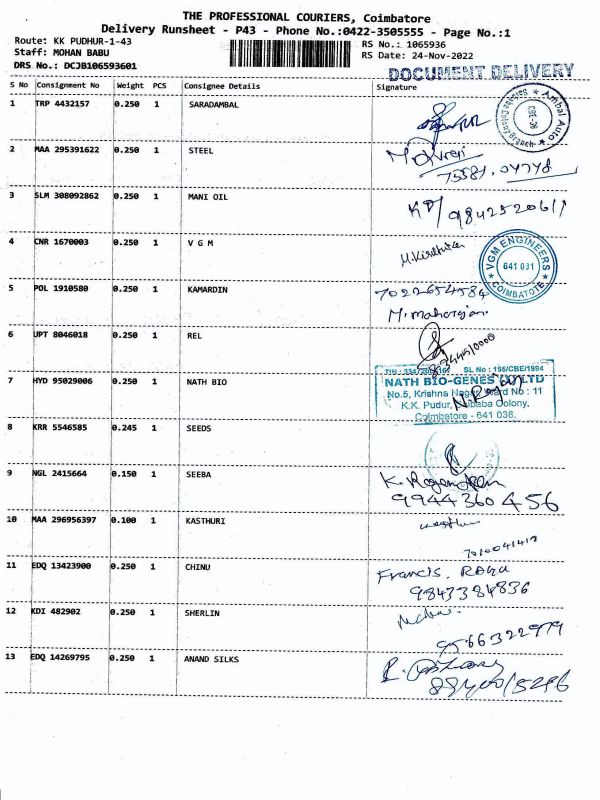 THE PROFESSIONAL COURIERS, Coimbatore
Delivery Runsheet - P43 - Phone No.:0422-3505555 - Page No.:1
Route: KK PUDHUR-1-43 RS No.: 1065936
Staff: MOHAN BABU RS Date: 24-Nov-2022
DRS No.: DCJB106593601 DOCUMENT DELIVERY
S No Consignment No Weight PCS Consignee Details Signature
1 TRP 4432157 0.250 1 SARADAMBAL
2 MAA 295391622 0.250 1 STEEL
75581.04778
3 SLM 308092862 0.250 1 MANI OIL
9842520611
4 CNR 1670003 0.250 1 V G M
VGM ENGINEERS
641 031
COIMBATOTE
5 POL 1910580 0.250 1 KAMARDIN 7022654584
M. maharajan.
6 UPT 8046018 0.250 1 REL
SL No : 155/CBE/1994
7 HYD 95029006 0.250 1 NATH BIO NATH BIO-GENES LTD
No.5, Krishna Nagar, Ward No : 11
K.K. Pudur, Colony,
Coimbatore - 641 038.
8 KRR 5546585 0.245 1 SEEDS
9 NGL 2415664 0.150 1 SEEBA
9944360456
10 MAA 296956397 0.100 1 KASTHURI
11 EDQ 13423900 0.250 1 CHINU Francis, RAHU
9843384836
12 KDI 482902 0.250 1 SHERLIN
9566322979
13 EDQ 14269795 0.250 1 ANAND SILKS